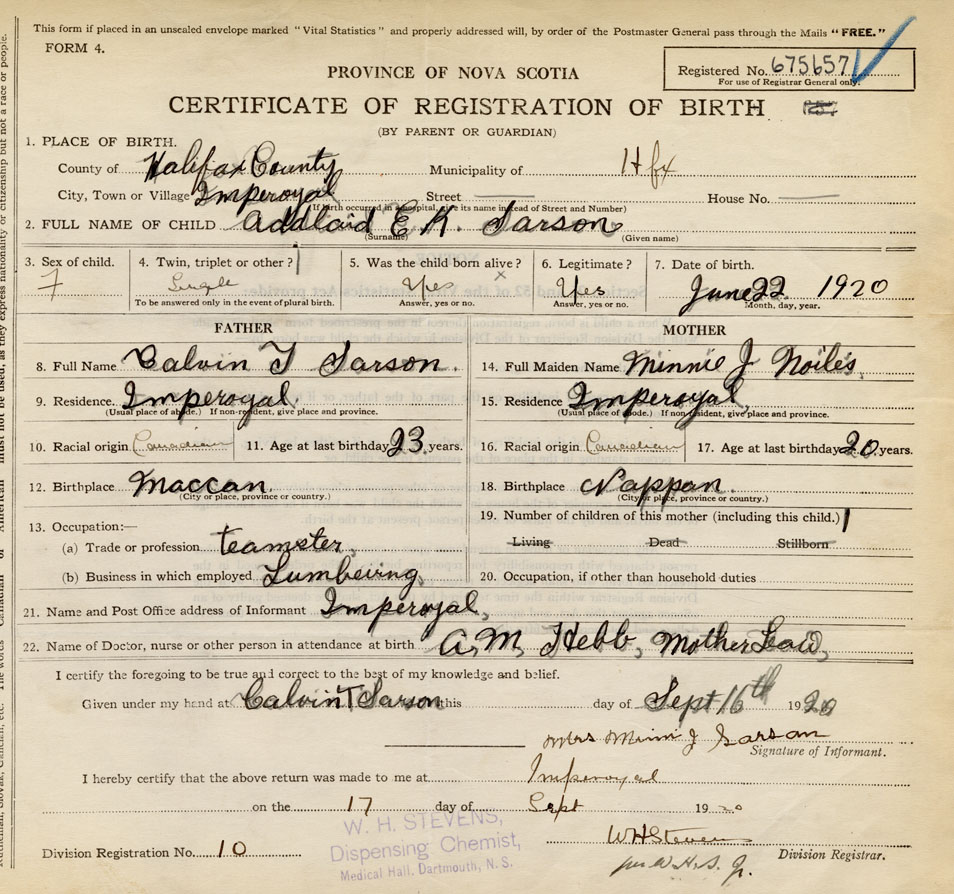 This form if placed in an unsealed envelope marked "Vital Statistics" and properly addressed will, by order of the Postmaster General pass through the Mails "FREE."
FORM 4.
Registered No. 675657
For use of Registrar General only.
PROVINCE OF NOVA SCOTIA
CERTIFICATE OF REGISTRATION OF BIRTH
(BY PARENT OR GUARDIAN)
1. PLACE OF BIRTH.
County of Halifax County Municipality of Hfx
City, Town or Village Imperoyal Street House No.
(If birth occurred in a hospital, give its name instead of Street and Number)
2. FULL NAME OF CHILD Addlaid E K. Sarson
(Surname) (Given name)
3. Sex of child. 4. Twin, triplet or other? 5. Was the child born alive? 6. Legitimate? 7. Date of birth.
F Single Yes Yes June 22 1920
To be answered only in the event of plural birth. Answer, yes or no. Answer, yes or no. Month, day, year.
FATHER MOTHER
8. Full Name Calvin T Sarson. 14. Full Maiden Name Minnie J Noiles
9. Residence Imperoyal. 15. Residence Imperoyal,
(Usual place of abode.) If non-resident, give place and province. (Usual place of abode.) If non-resident, give place and province.
10. Racial origin Canadian 11. Age at last birthday 23 years. 16. Racial origin Canadian 17. Age at last birthday 20 years.
12. Birthplace Maccan. 18. Birthplace Nappan.
(City or place, province or country.) (City or place, province or country.)
13. Occupation:— 19. Number of children of this mother (including this child.) 1
Living Dead Stillborn
(a) Trade or profession teamster,
(b) Business in which employed Lumbeiing, 20. Occupation, if other than household duties
21. Name and Post Office address of Informant Imperoyal,
22. Name of Doctor, nurse or other person in attendance at birth A. M. Hebb, Mother Law,
I certify the foregoing to be true and correct to the best of my knowledge and belief.
Given under my hand at Calvin T Sarson this day of Sept 16th 1920
Mrs Minni J Sarson
Signature of Informant.
I hereby certify that the above return was made to me at Imperoyal
on the 17 day of Sept 1920
W. H. STEVENS,
Dispensing Chemist,
Medical Hall, Dartmouth, N. S.
WHSteven
Division Registration No. 10 per W.H.S. Jr. Division Registrar.